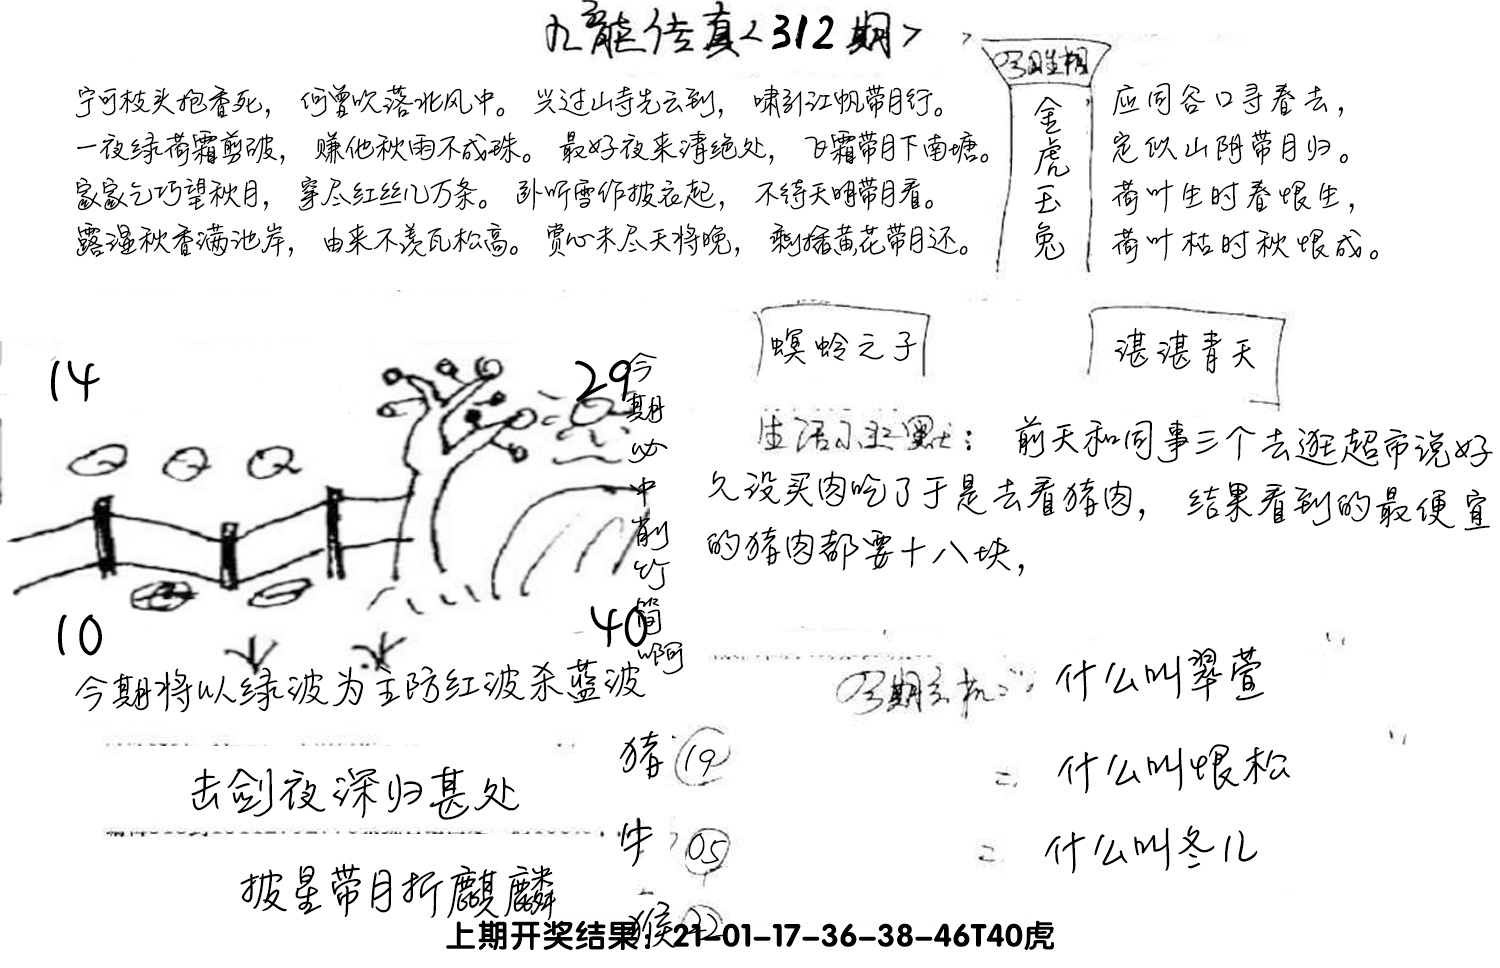 九龙传真<312期>
宁可枝头抱香死， 何曾吹落北风中。 兴过山寺先云到， 啸引江帆带月行。
一夜绿荷霜剪破， 赚他秋雨不成珠。 最好夜来清绝处， 飞霜带月下南塘。
家家乞巧望秋月， 穿尽红丝几万条。 卧听雪作披衣起， 不待天明带月看。
露湿秋香满池岸， 由来不羡瓦松高。 赏心未尽天将晚， 剩插黄花带月还。
今日生相
金虎玉兔
应同谷口寻春去，
定似山阴带月归。
荷叶生时春恨生，
荷叶枯时秋恨成。
螟蛉之子
湛湛青天
14
29
10
40
今期必中削竹简啊
今期将以绿波为主防红波杀蓝波
生活小幽默： 前天和同事三个去逛超市说好
久没买肉吃了于是去看猪肉， 结果看到的最便宜
的猪肉都要十八块，
今期玄机： 什么叫翠萱
= 什么叫恨松
= 什么叫冬儿
击剑夜深归甚处
披星带月折麒麟
猪 19
牛 05
猴 22
上期开奖结果：21-01-17-36-38-46T40虎